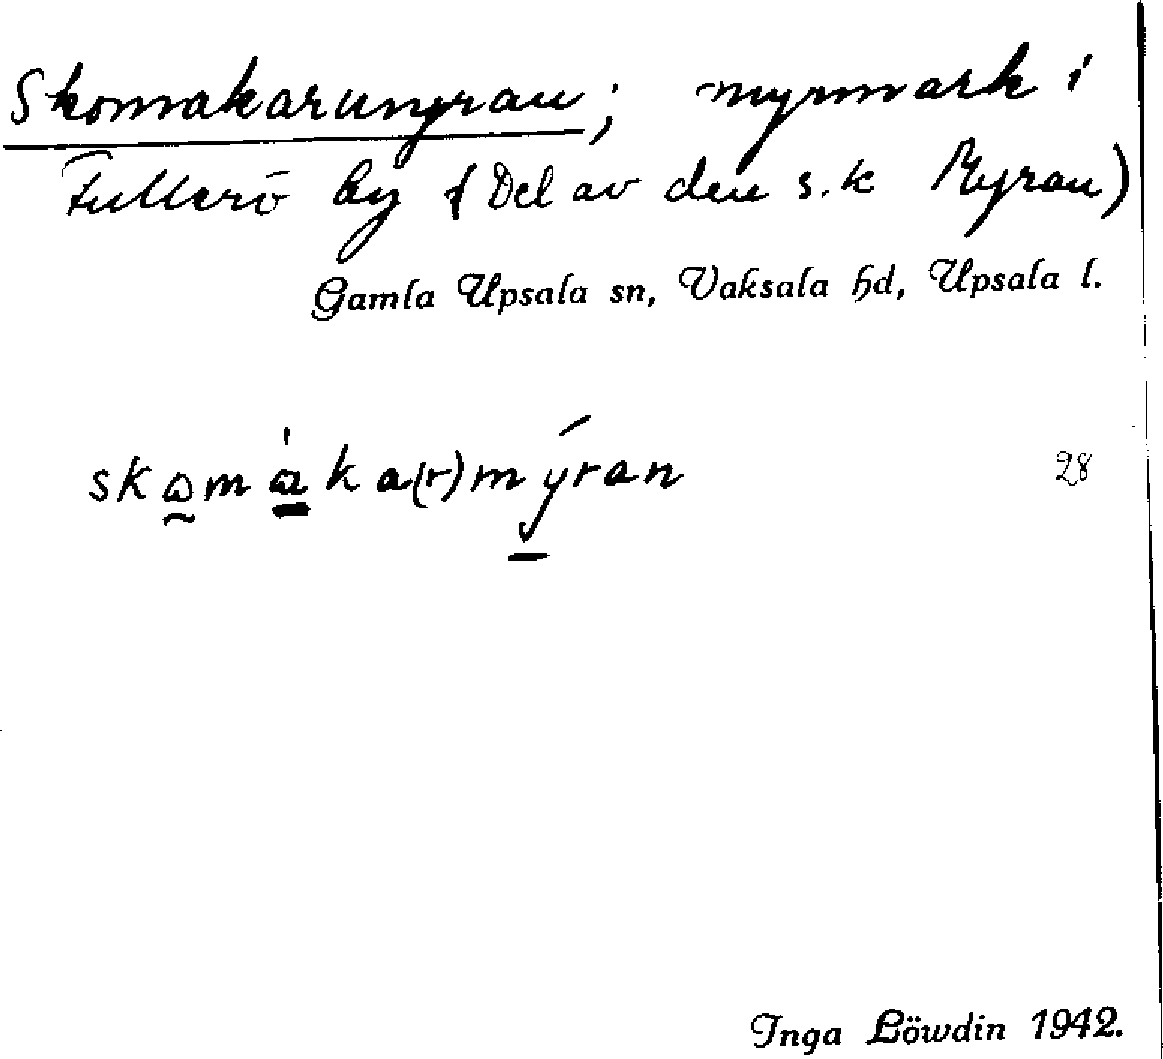 Skomakarmyran; myrmark i
Fullerö by (Del av den s.k Myran)
Gamla Upsala sn, Vaksala hd, Upsala l.
28
Inga Löwdin 1942.